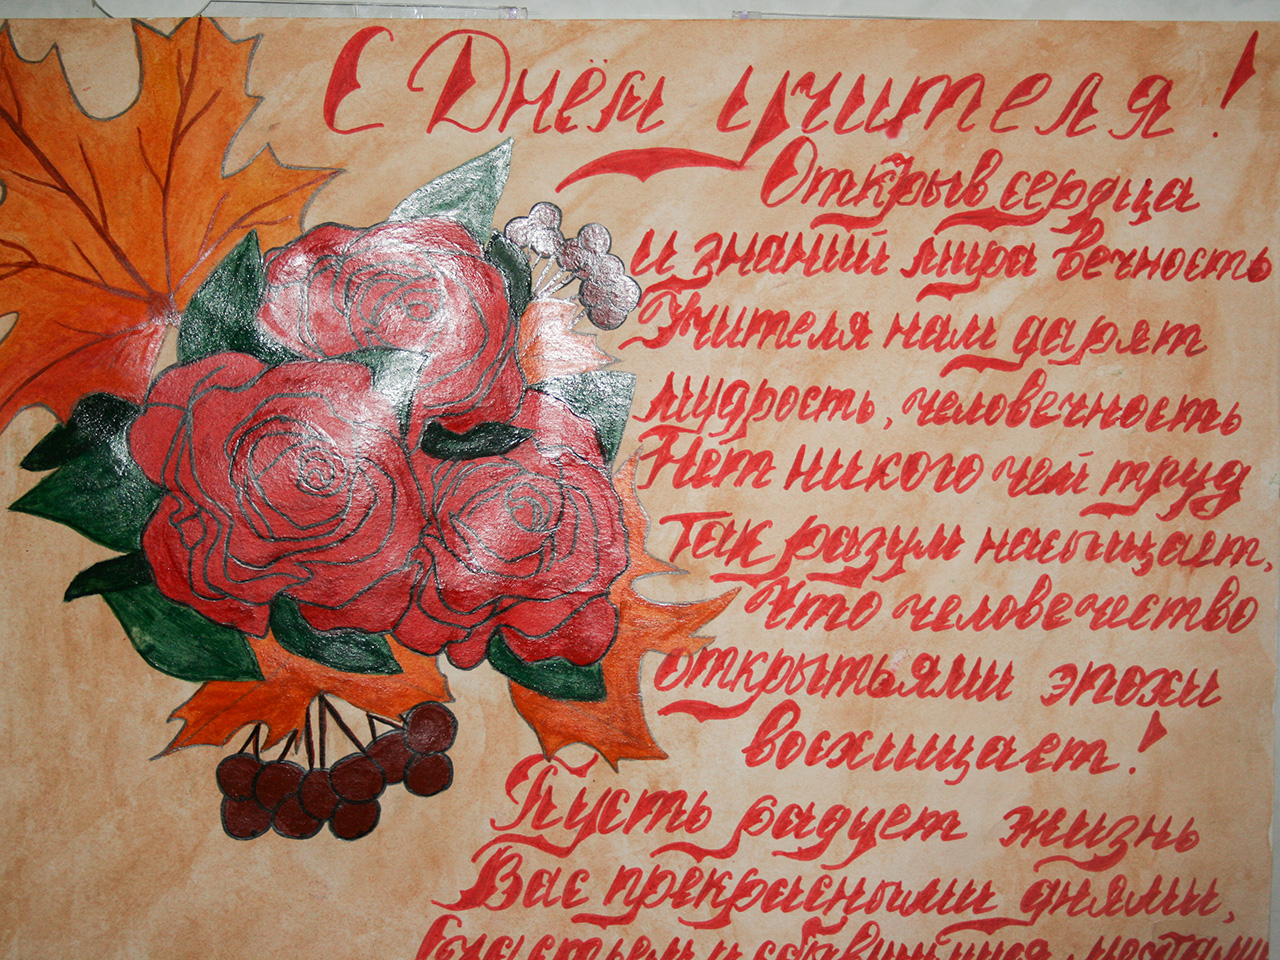 С Днём учителя!
Открыв сердца
и знаний мира вечность
Учителя нам дарят
мудрость, человечность
Нет никого чей труд
Так разум насыщает,
Что человечество
открытьями эпохи
восхищает!
Пусть радует жизнь
Вас прекрасными днями,
Счастьем и сбывшимися мечтами